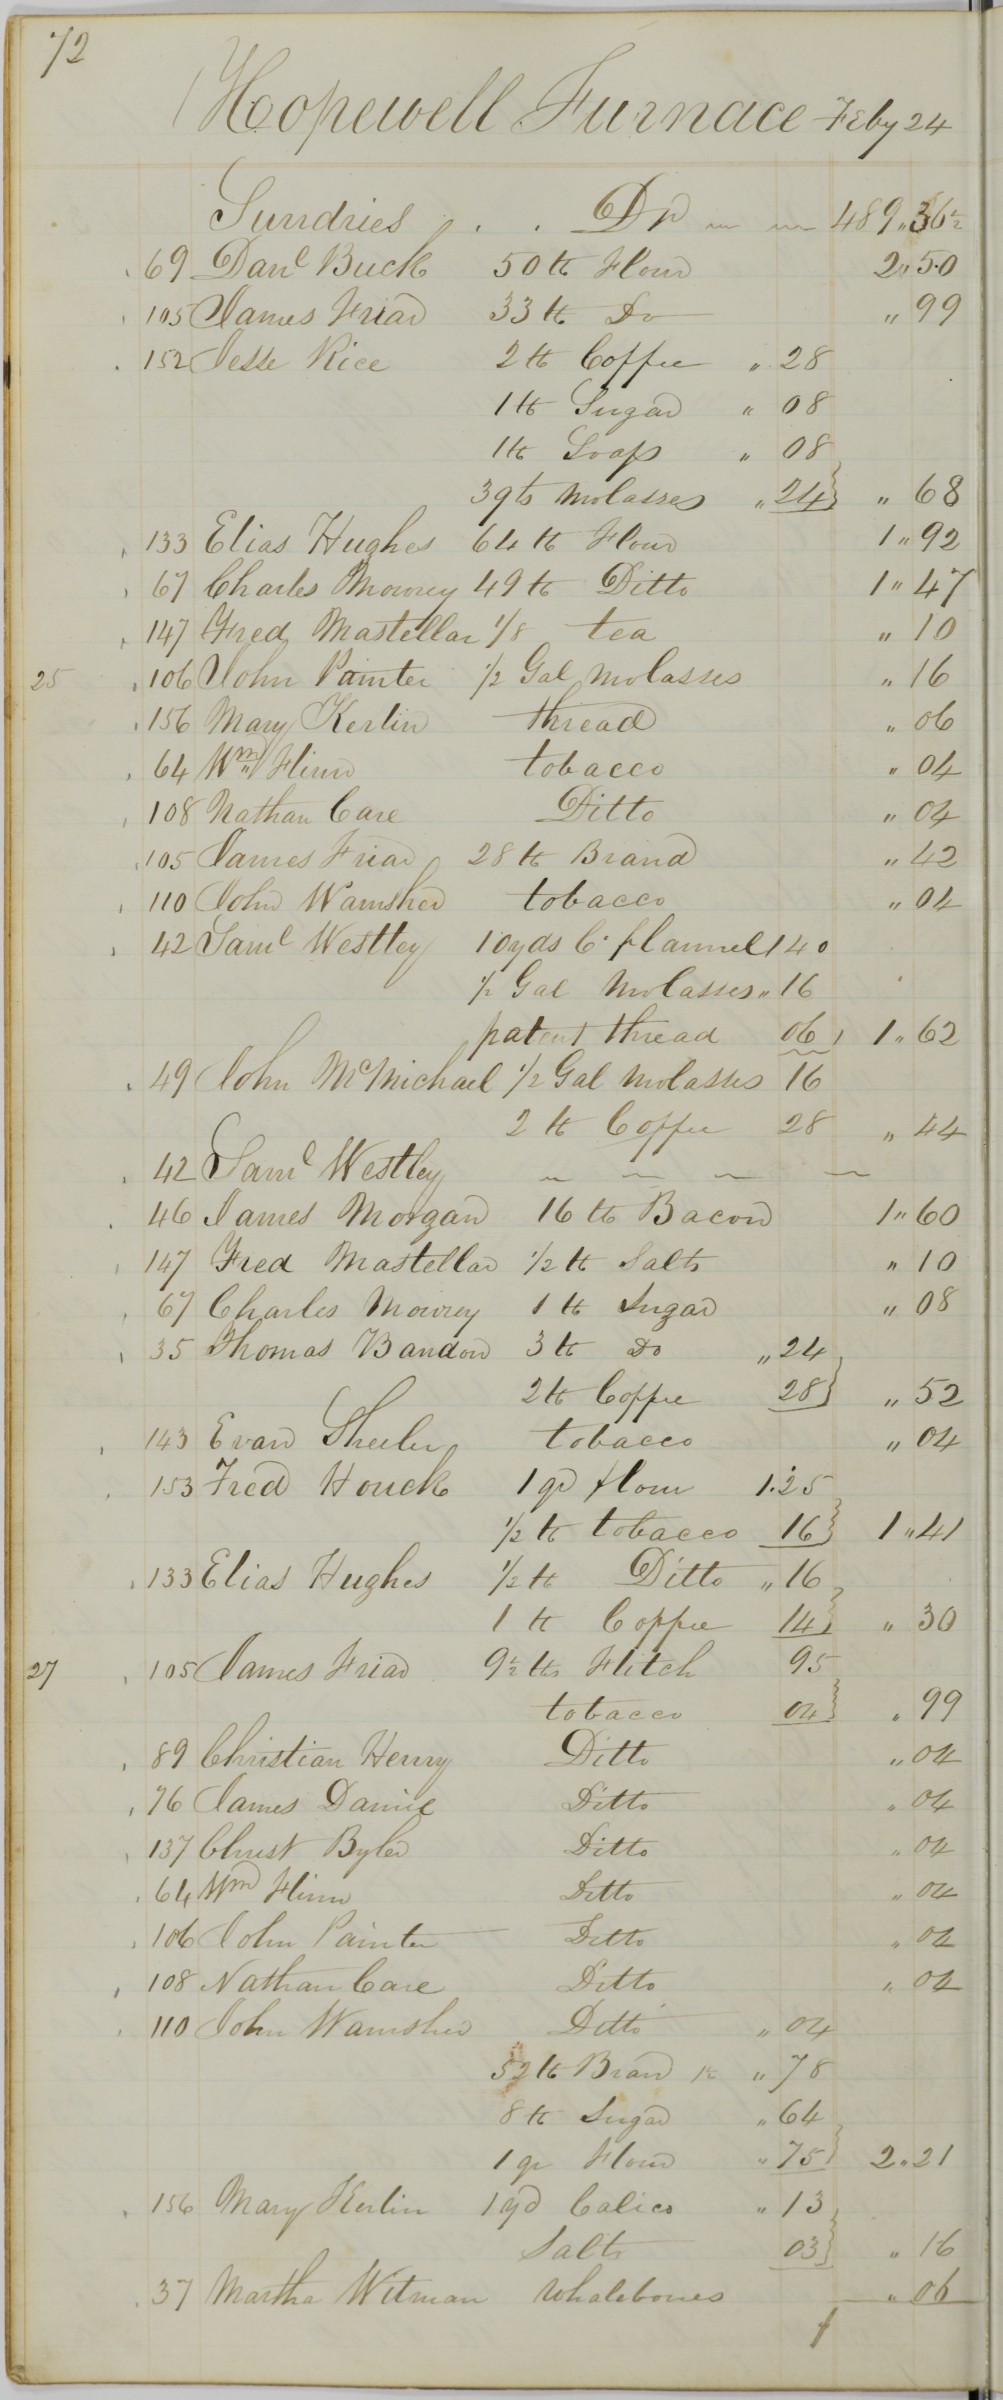 72
Hopewell Furnace Feby 24
Sundries . . Dr 489„36½
69 Danl Buck 50 ℔ Flour 2„50
105 James Friar 33 ℔ Do „ 99
152 Jesse Rice 2 ℔ Coffee „ 28
1 ℔ Sugar „ 08
1 ℔ Soap „ 08
3 qts Molasses „ 24 „ 68
133 Elias Hughes 64 ℔ Flour 1„92
67 Charles Mowrey 49 ℔ Ditto 1„47
147 Fred Mastellar 1/8 tea „ 10
25 106 John Painter 1/2 Gal Molasses „ 16
156 Mary Kerlin thread „ 06
64 Wm Flinn tobacco „ 04
108 Nathan Care Ditto „ 04
105 James Friar 28 ℔ Brand „ 42
110 John Wamsher tobacco „ 04
42 Saml Westley 10 yds C. flannel 1 40
1/2 Gal Molasses „ 16
patent thread 06 1„62
49 John McMichael 1/2 Gal Molasses 16
2 ℔ Coffee 28 „ 44
42 Saml Westley
46 James Morgan 16 ℔ Bacon 1„60
147 Fred Mastellar 1/2 ℔ Salts „ 10
67 Charles Mowrey 1 ℔ Sugar „ 08
35 Thomas Bandon 3 ℔ Do „ 24
2 ℔ Coffee 28 „ 52
143 Evan Sheeler tobacco „ 04
153 Fred Houck 1 qr flour 1.25
1/2 ℔ tobacco 16 1„41
133 Elias Hughes 1/2 ℔ Ditto „ 16
1 ℔ Coffee 14 „ 30
27 105 James Friar 9½ ℔s Flitch 95
tobacco 04 „ 99
89 Christian Henry Ditto „ 04
76 James Daniel Ditto „ 04
137 Christ Byler Ditto „ 04
64 Wm Flinn Ditto „ 04
106 John Painter Ditto „ 04
108 Nathan Care Ditto „ 04
110 John Wamsher Ditto „ 04
52 ℔ Bran „ 78
8 ℔ Sugar „ 64
1 qr Flour „ 75 2„21
156 Mary Kerlin 1 yd Calico „ 13
Salts 03 „ 16
37 Martha Witman Whalebones „ 06